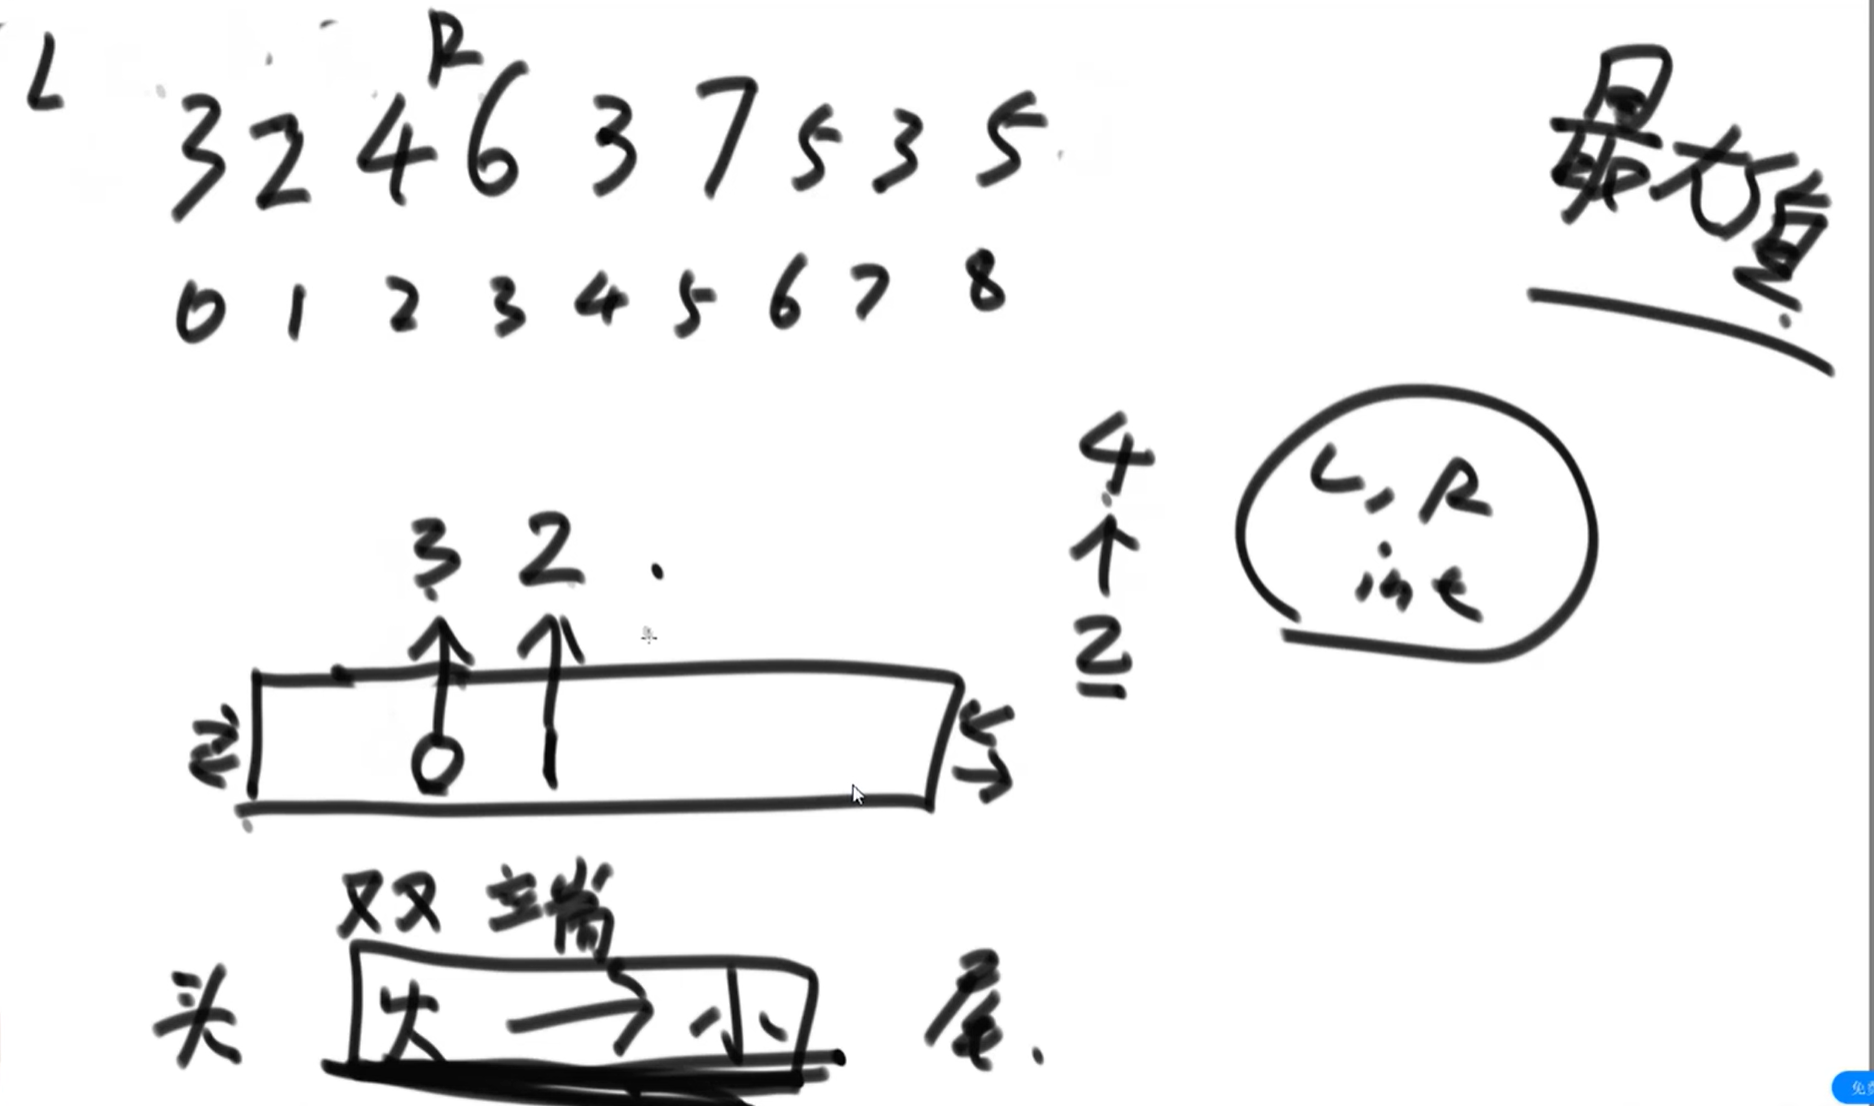 L R
3 2 4 6 3 7 5 3 5
0 1 2 3 4 5 6 7 8
最大值
4
↑
2
L, R
int
3 2
↑ ↑
0 1
双端
头 大 → 小 尾